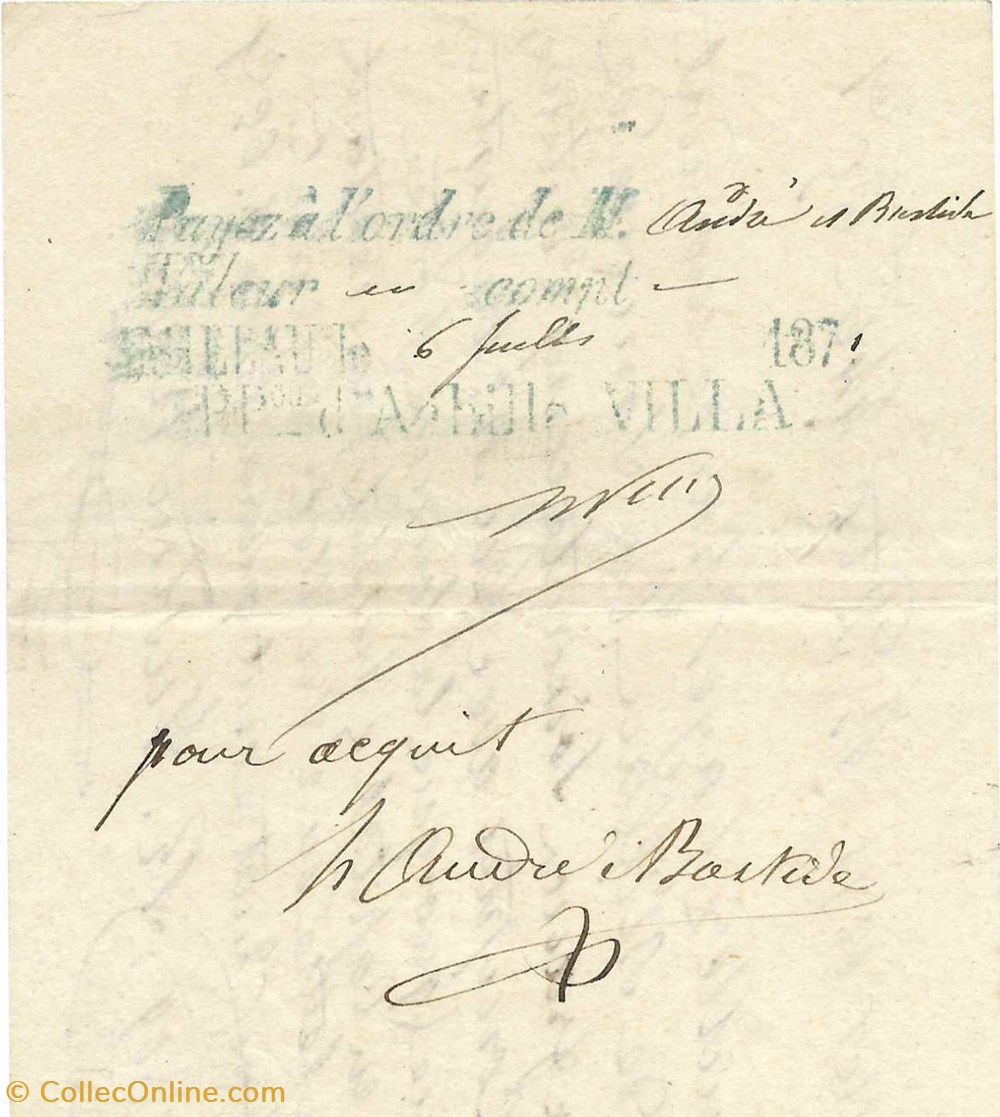 Payez à l'ordre de M. André et Bastide
Valeur en compt
le 6 Juillet 1871
d'Achille VILLA
pour acquit
p André & Bastide
© CollecOnline.com